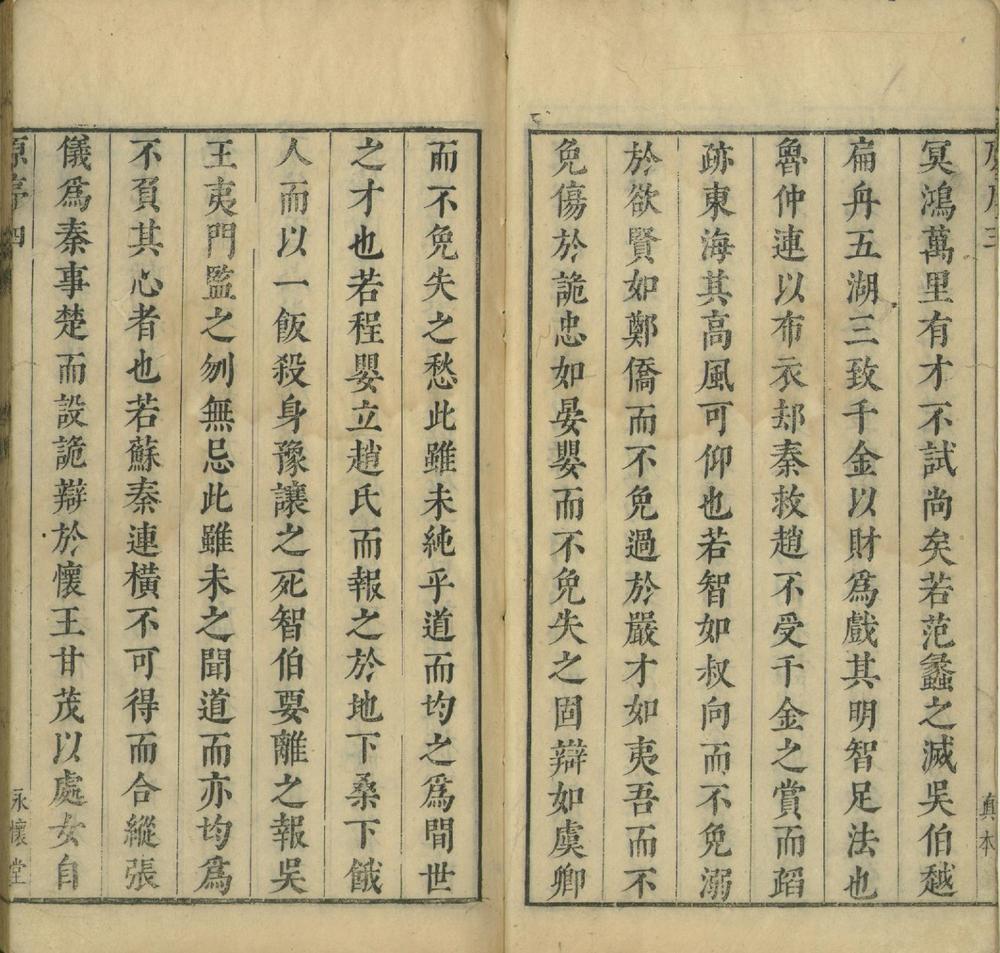 原序三
真本
冥鴻萬里有才不試尚矣若范蠡之滅吳伯越
扁舟五湖三致千金以財爲戲其明智足法也
魯仲連以布衣却秦救趙不受千金之賞而蹈
跡東海其高風可仰也若智如叔向而不免溺
於欲賢如鄭僑而不免過於嚴才如夷吾而不
免傷於詭忠如晏嬰而不免失之固辯如虞卿
而不免失之愁此雖未純乎道而均之爲間世
之才也若程嬰立趙氏而報之於地下桑下餓
人而以一飯殺身豫讓之死智伯要離之報吳
王夷門監之刎無忌此雖未之聞道而亦均爲
不負其心者也若蘇秦連橫不可得而合縱張
儀爲秦事楚而設詭辯於懷王甘茂以處女自
原序四
永懷堂